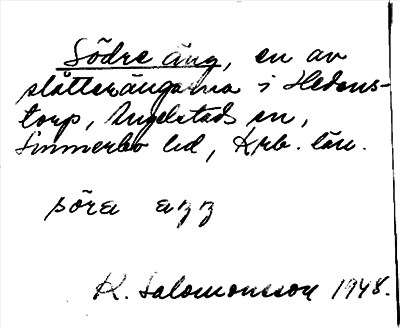 Södre äng, en av
slåtterängarna i Hedens-
torp, Angelstads sn,
Sunnerbo hd, Krb. län.
söra
K. Salomonsson 1948.